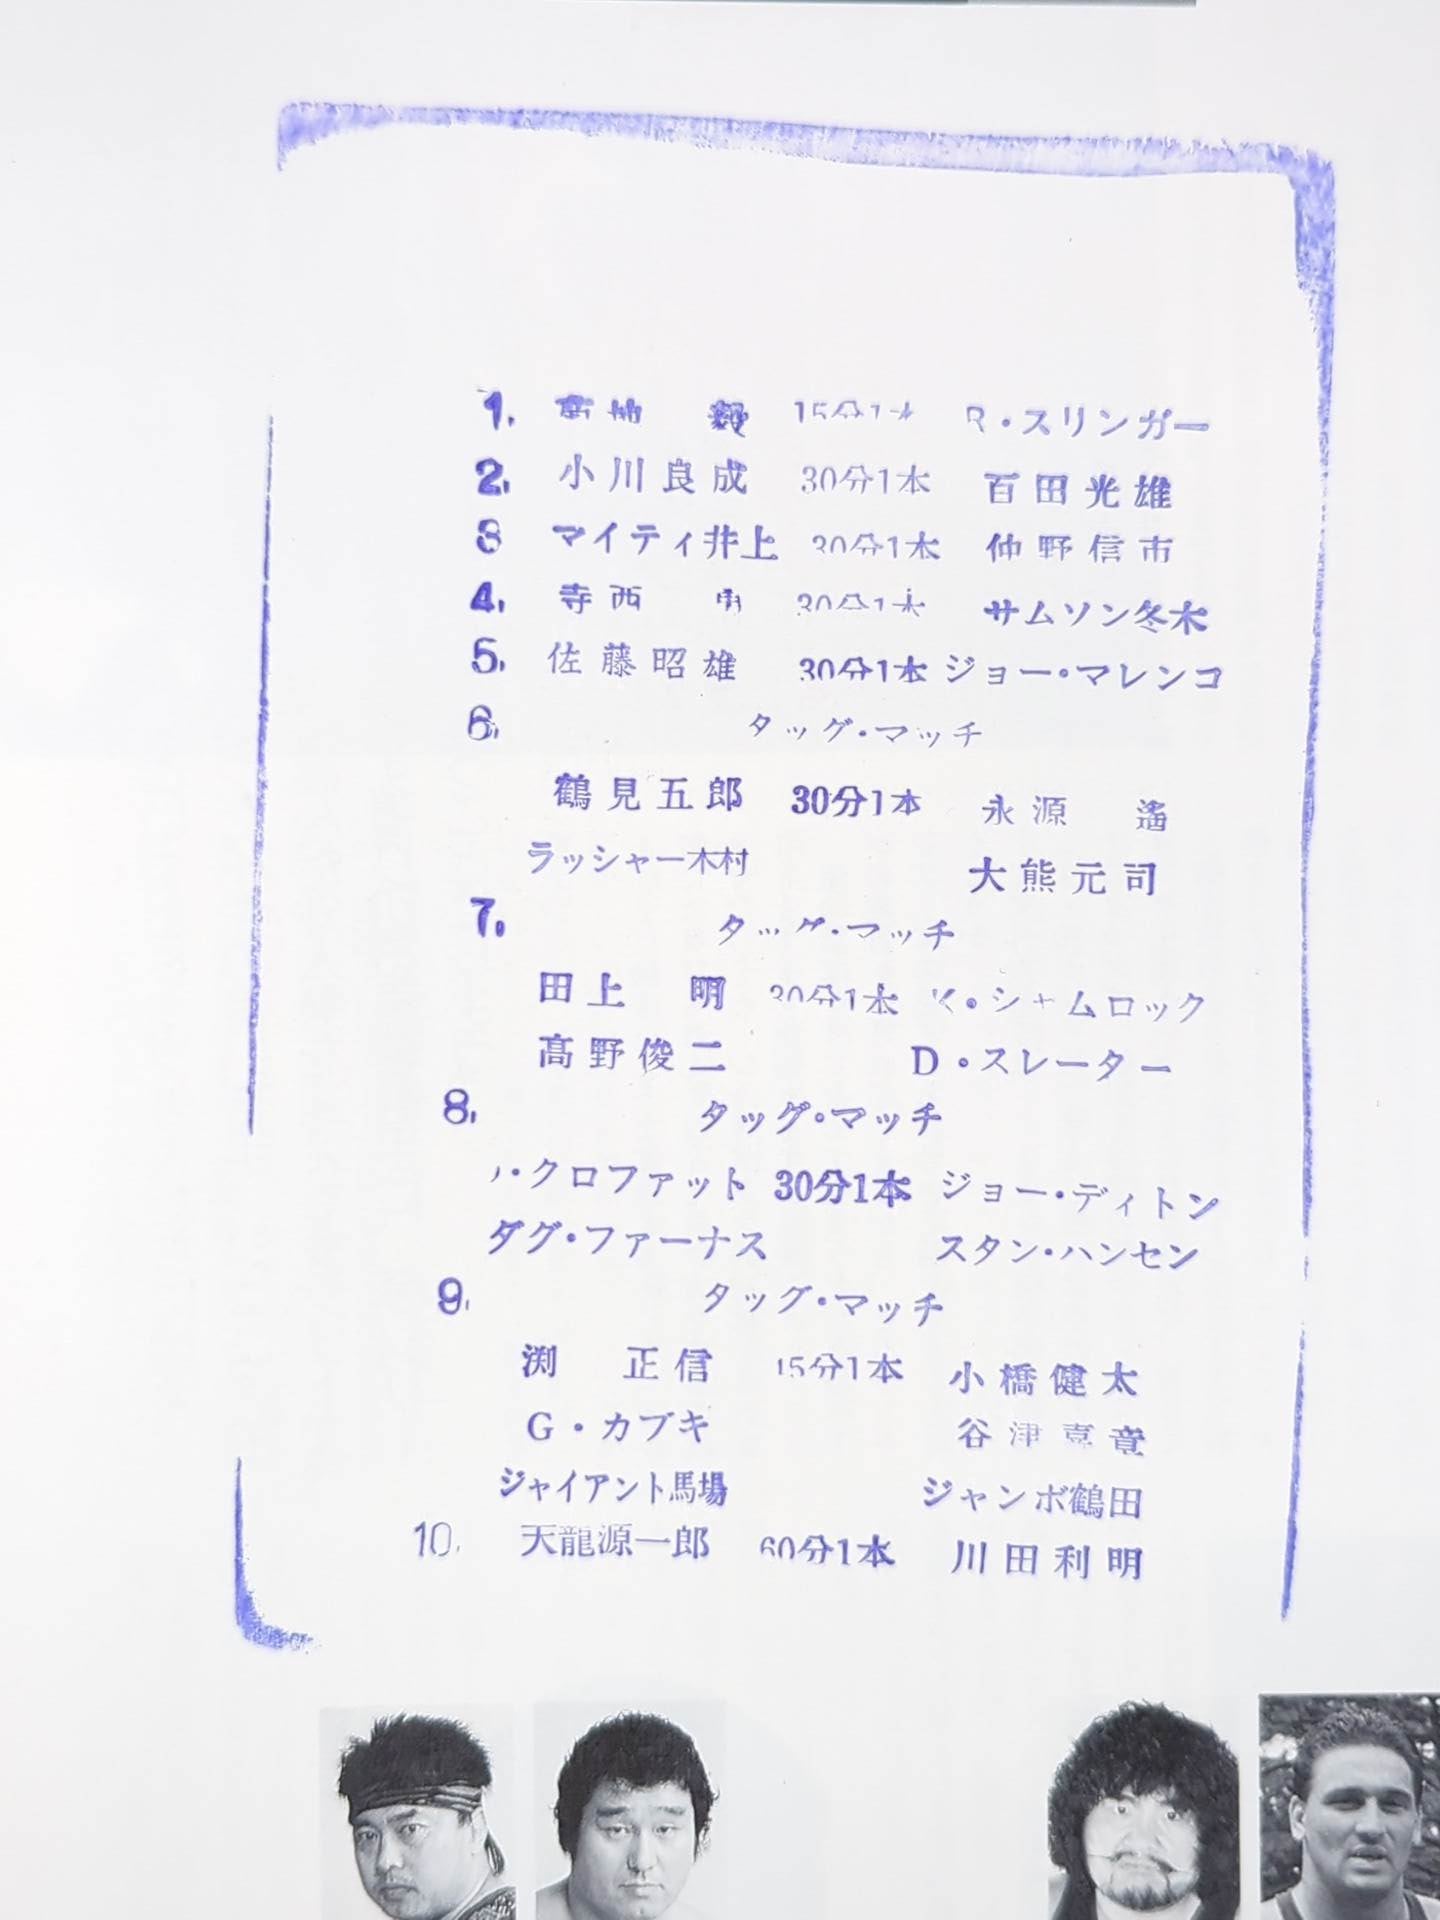 1. 15分1本 R・スリンガー
2. 小川良成 30分1本 百田光雄
3 マイティ井上 30分1本 仲野信市
4. 寺西 勇 30分1本 サムソン冬木
5. 佐藤昭雄 30分1本 ジョー・マレンコ
6. タッグ・マッチ
鶴見五郎 30分1本 永源 遙
ラッシャー木村 大熊元司
7. タッグ・マッチ
田上 明 30分1本 K・シャムロック
高野俊二 D・スレーター
8. タッグ・マッチ
・クロファット 30分1本 ジョー・ディトン
ダグ・ファーナス スタン・ハンセン
9. タッグ・マッチ
渕 正信 45分1本 小橋健太
G・カブキ 谷津嘉章
ジャイアント馬場 ジャンボ鶴田
10. 天龍源一郎 60分1本 川田利明